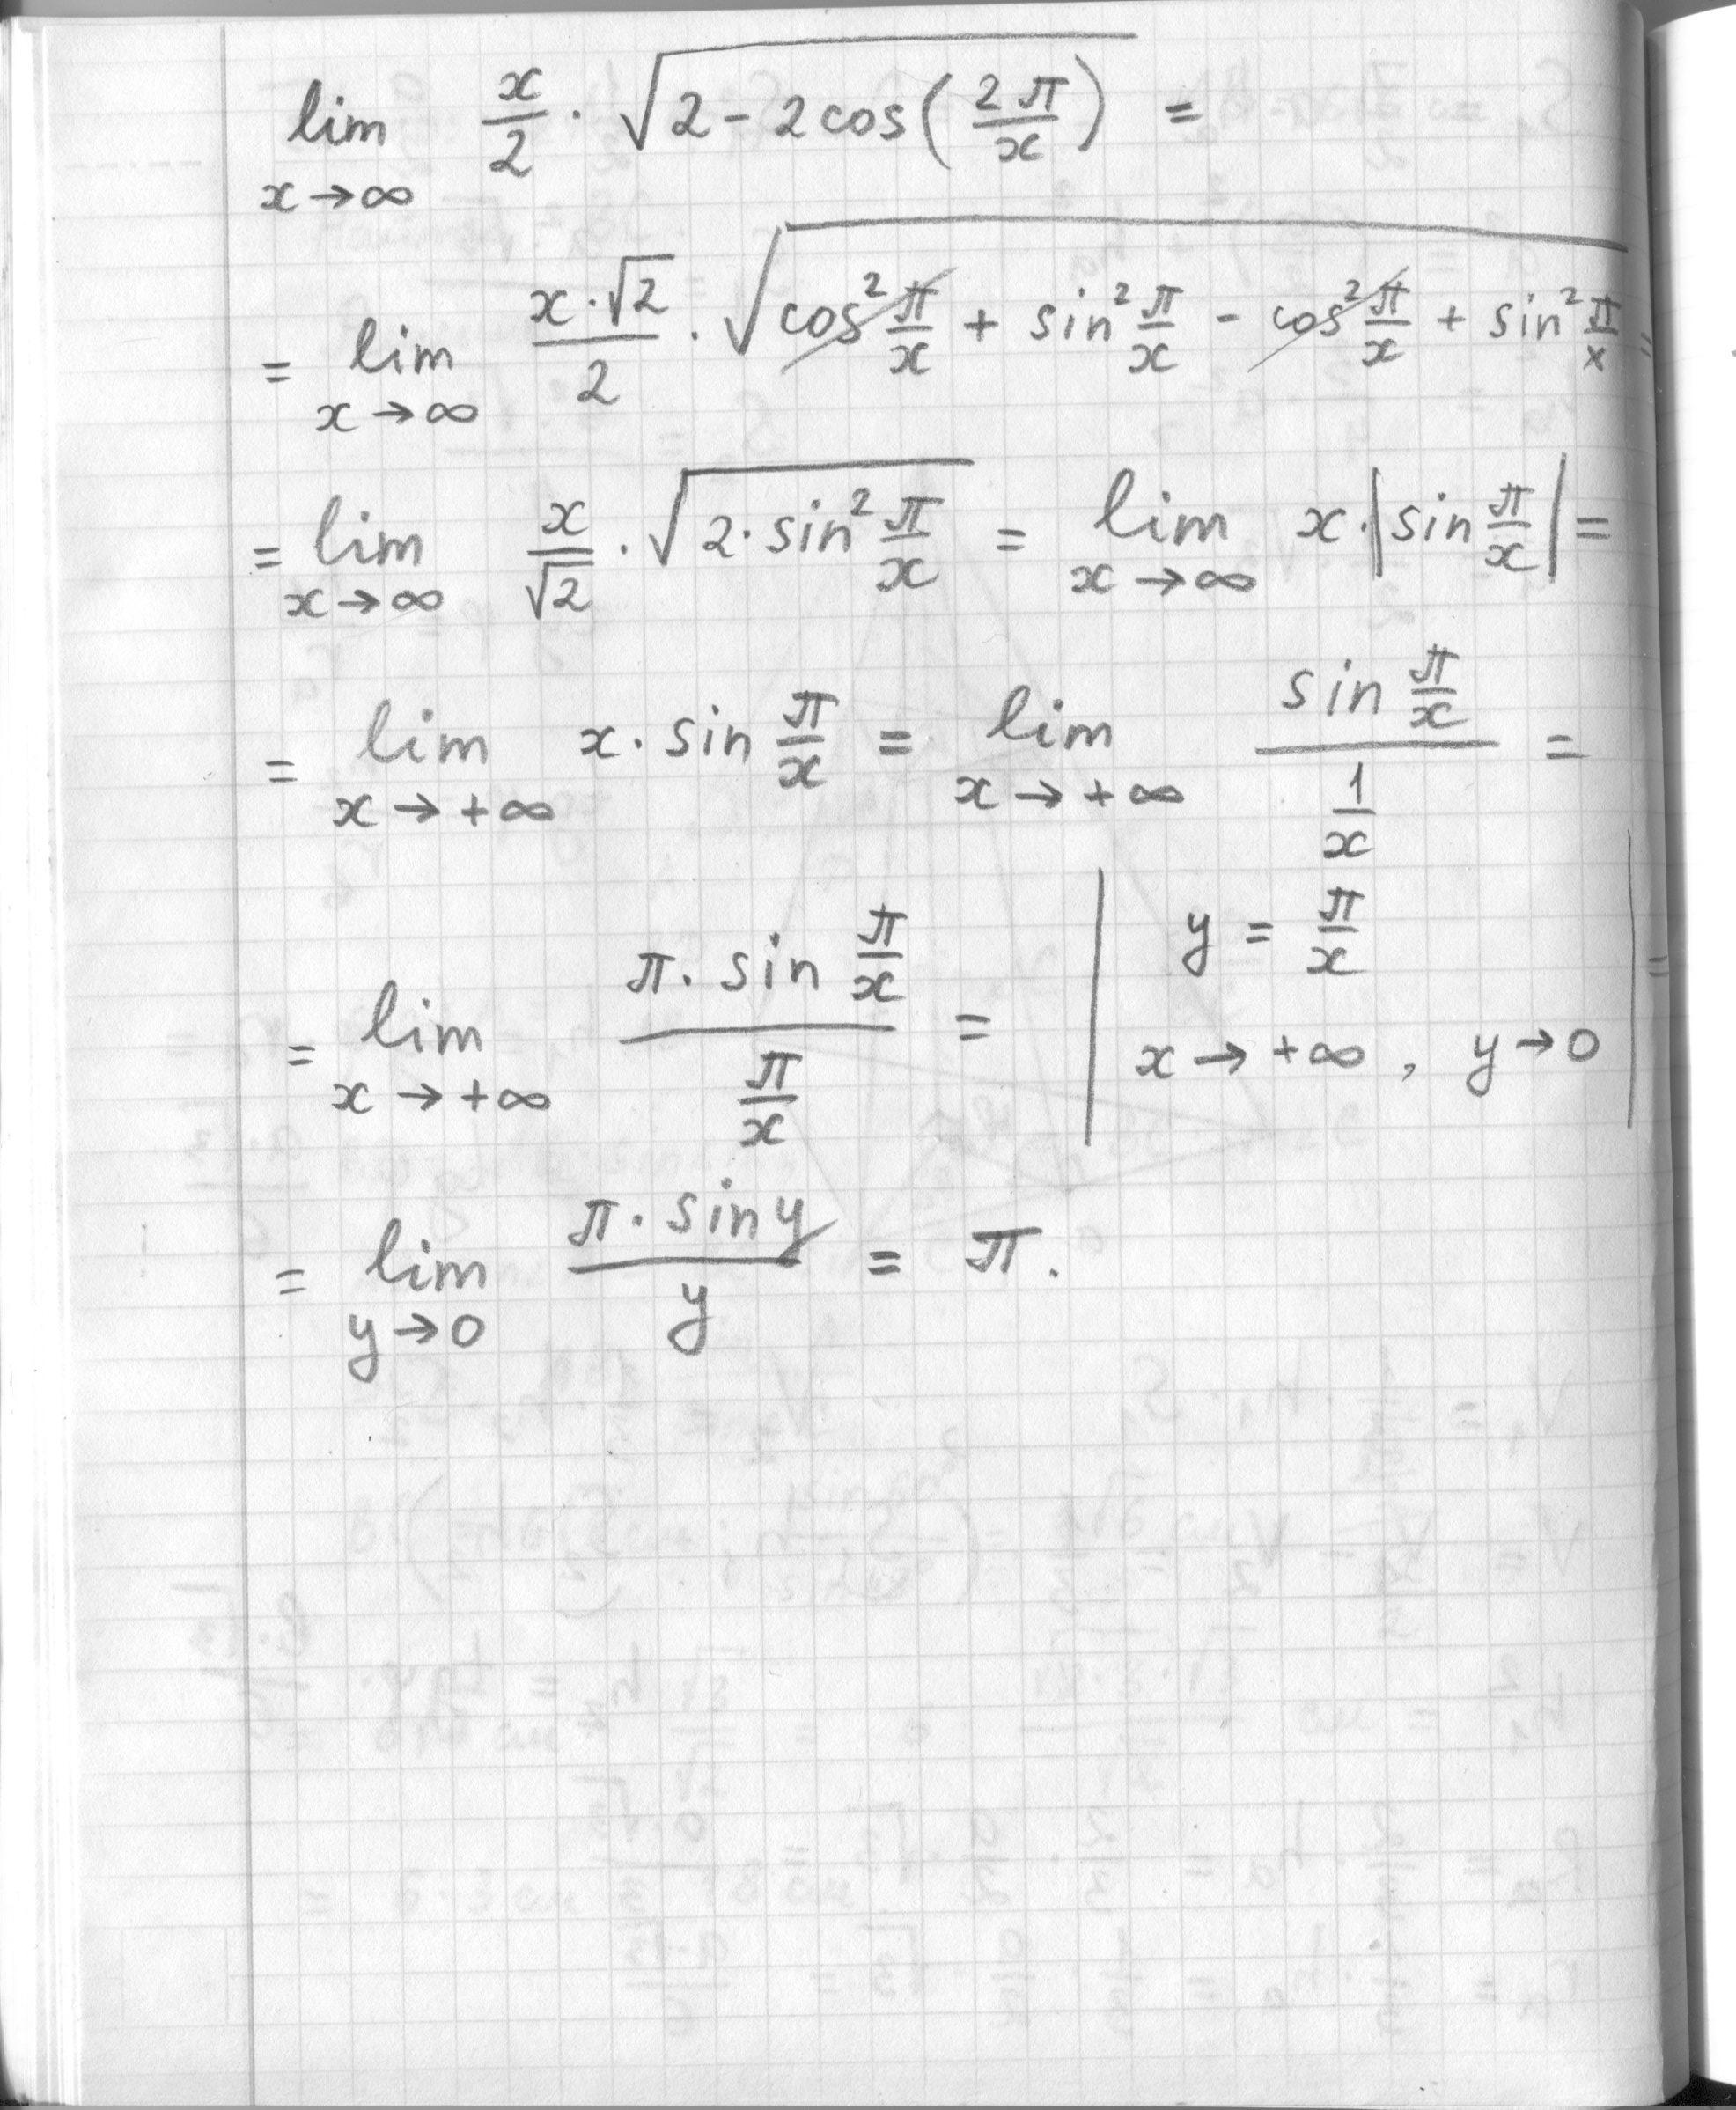 lim x→∞ x/2 · √(2 - 2cos(2π/x)) =
= lim x→∞ x·√2/2 · √(cos² π/x + sin² π/x - cos² π/x + sin² π/x) =
= lim x→∞ x/√2 · √(2·sin² π/x) = lim x→∞ x·|sin π/x| =
= lim x→+∞ x· sin π/x = lim x→+∞ (sin π/x)/(1/x) =
= lim x→+∞ (π· sin π/x)/(π/x) = | y = π/x
x→+∞, y→0 | =
= lim y→0 (π· sin y)/y = π.